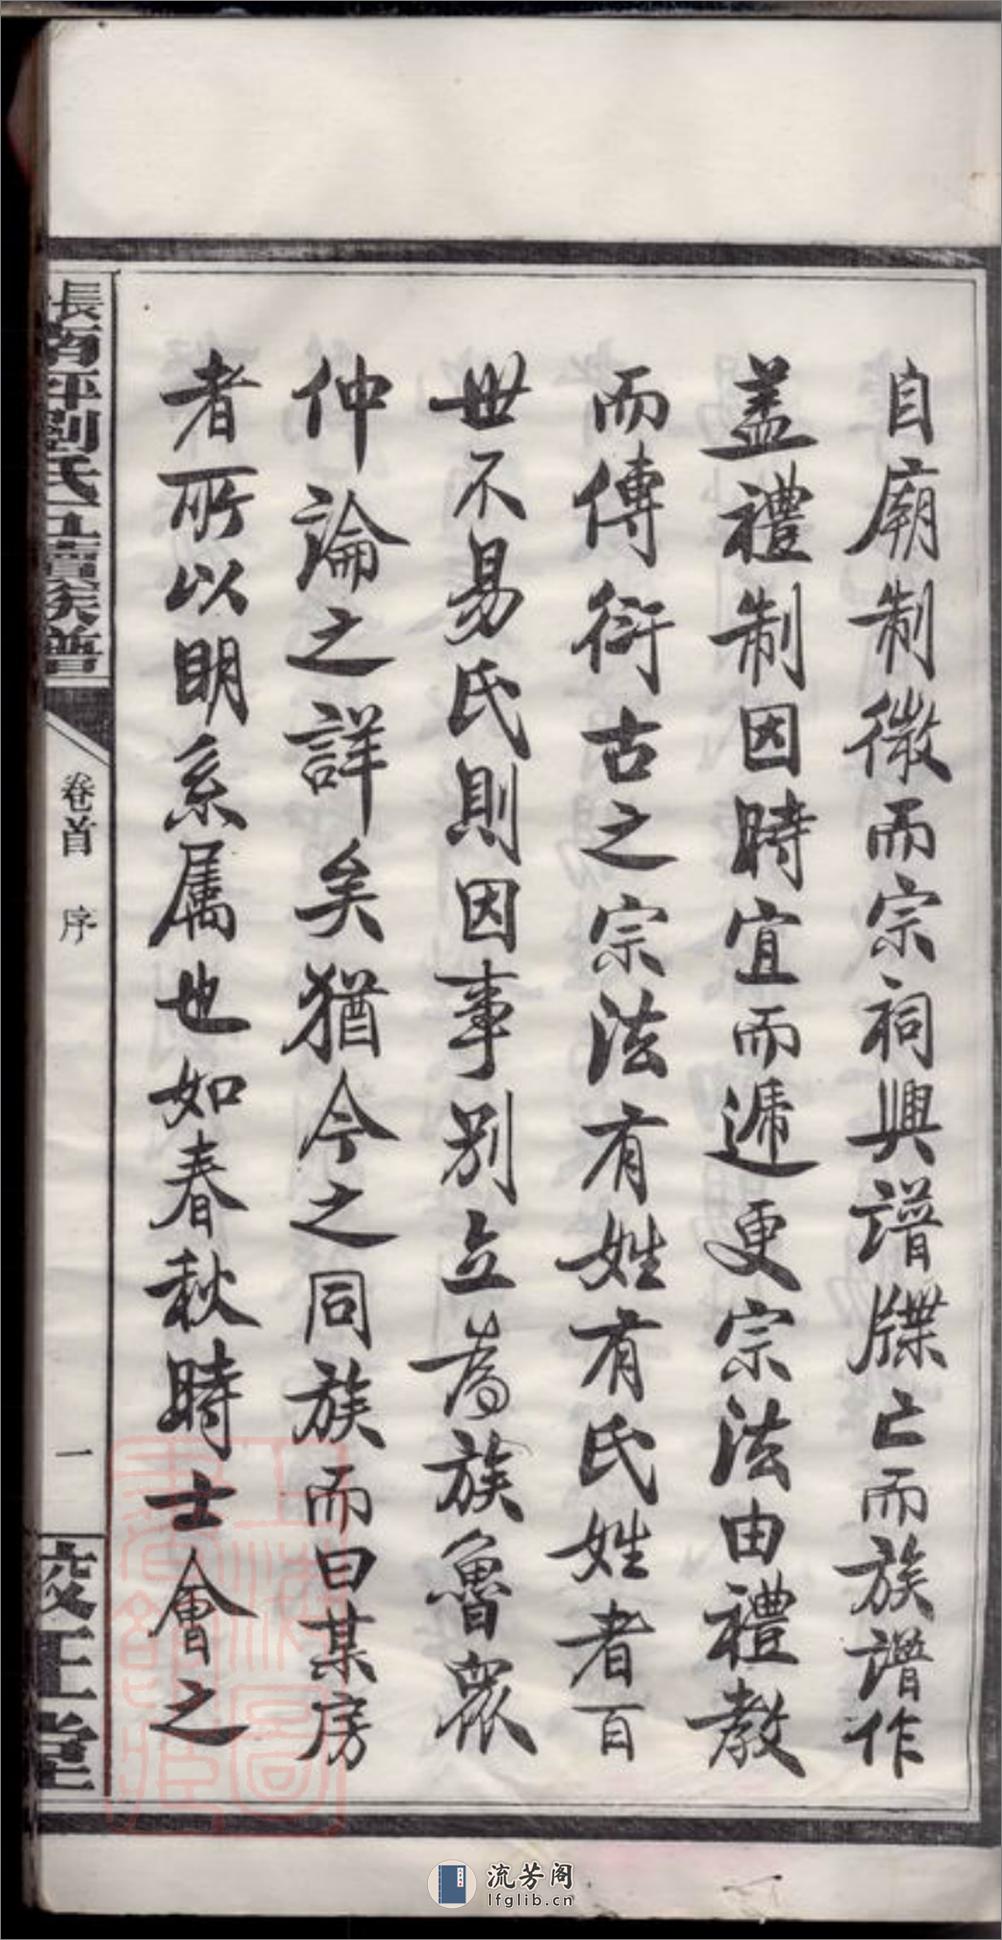 自廟制微而宗祠興譜牒亡而族譜作
蓋禮制因時宜而遞更宗法由禮教
而傳衍古之宗法有姓有氏姓者百
世不易氏則因事別立為族魯眾
仲論之詳矣猶今之同族而曰某房
者所以明系属也如春秋時士會之
長南坪劉氏五續族譜
卷首 序
一
校正堂
流芳阁
lfglib.cn